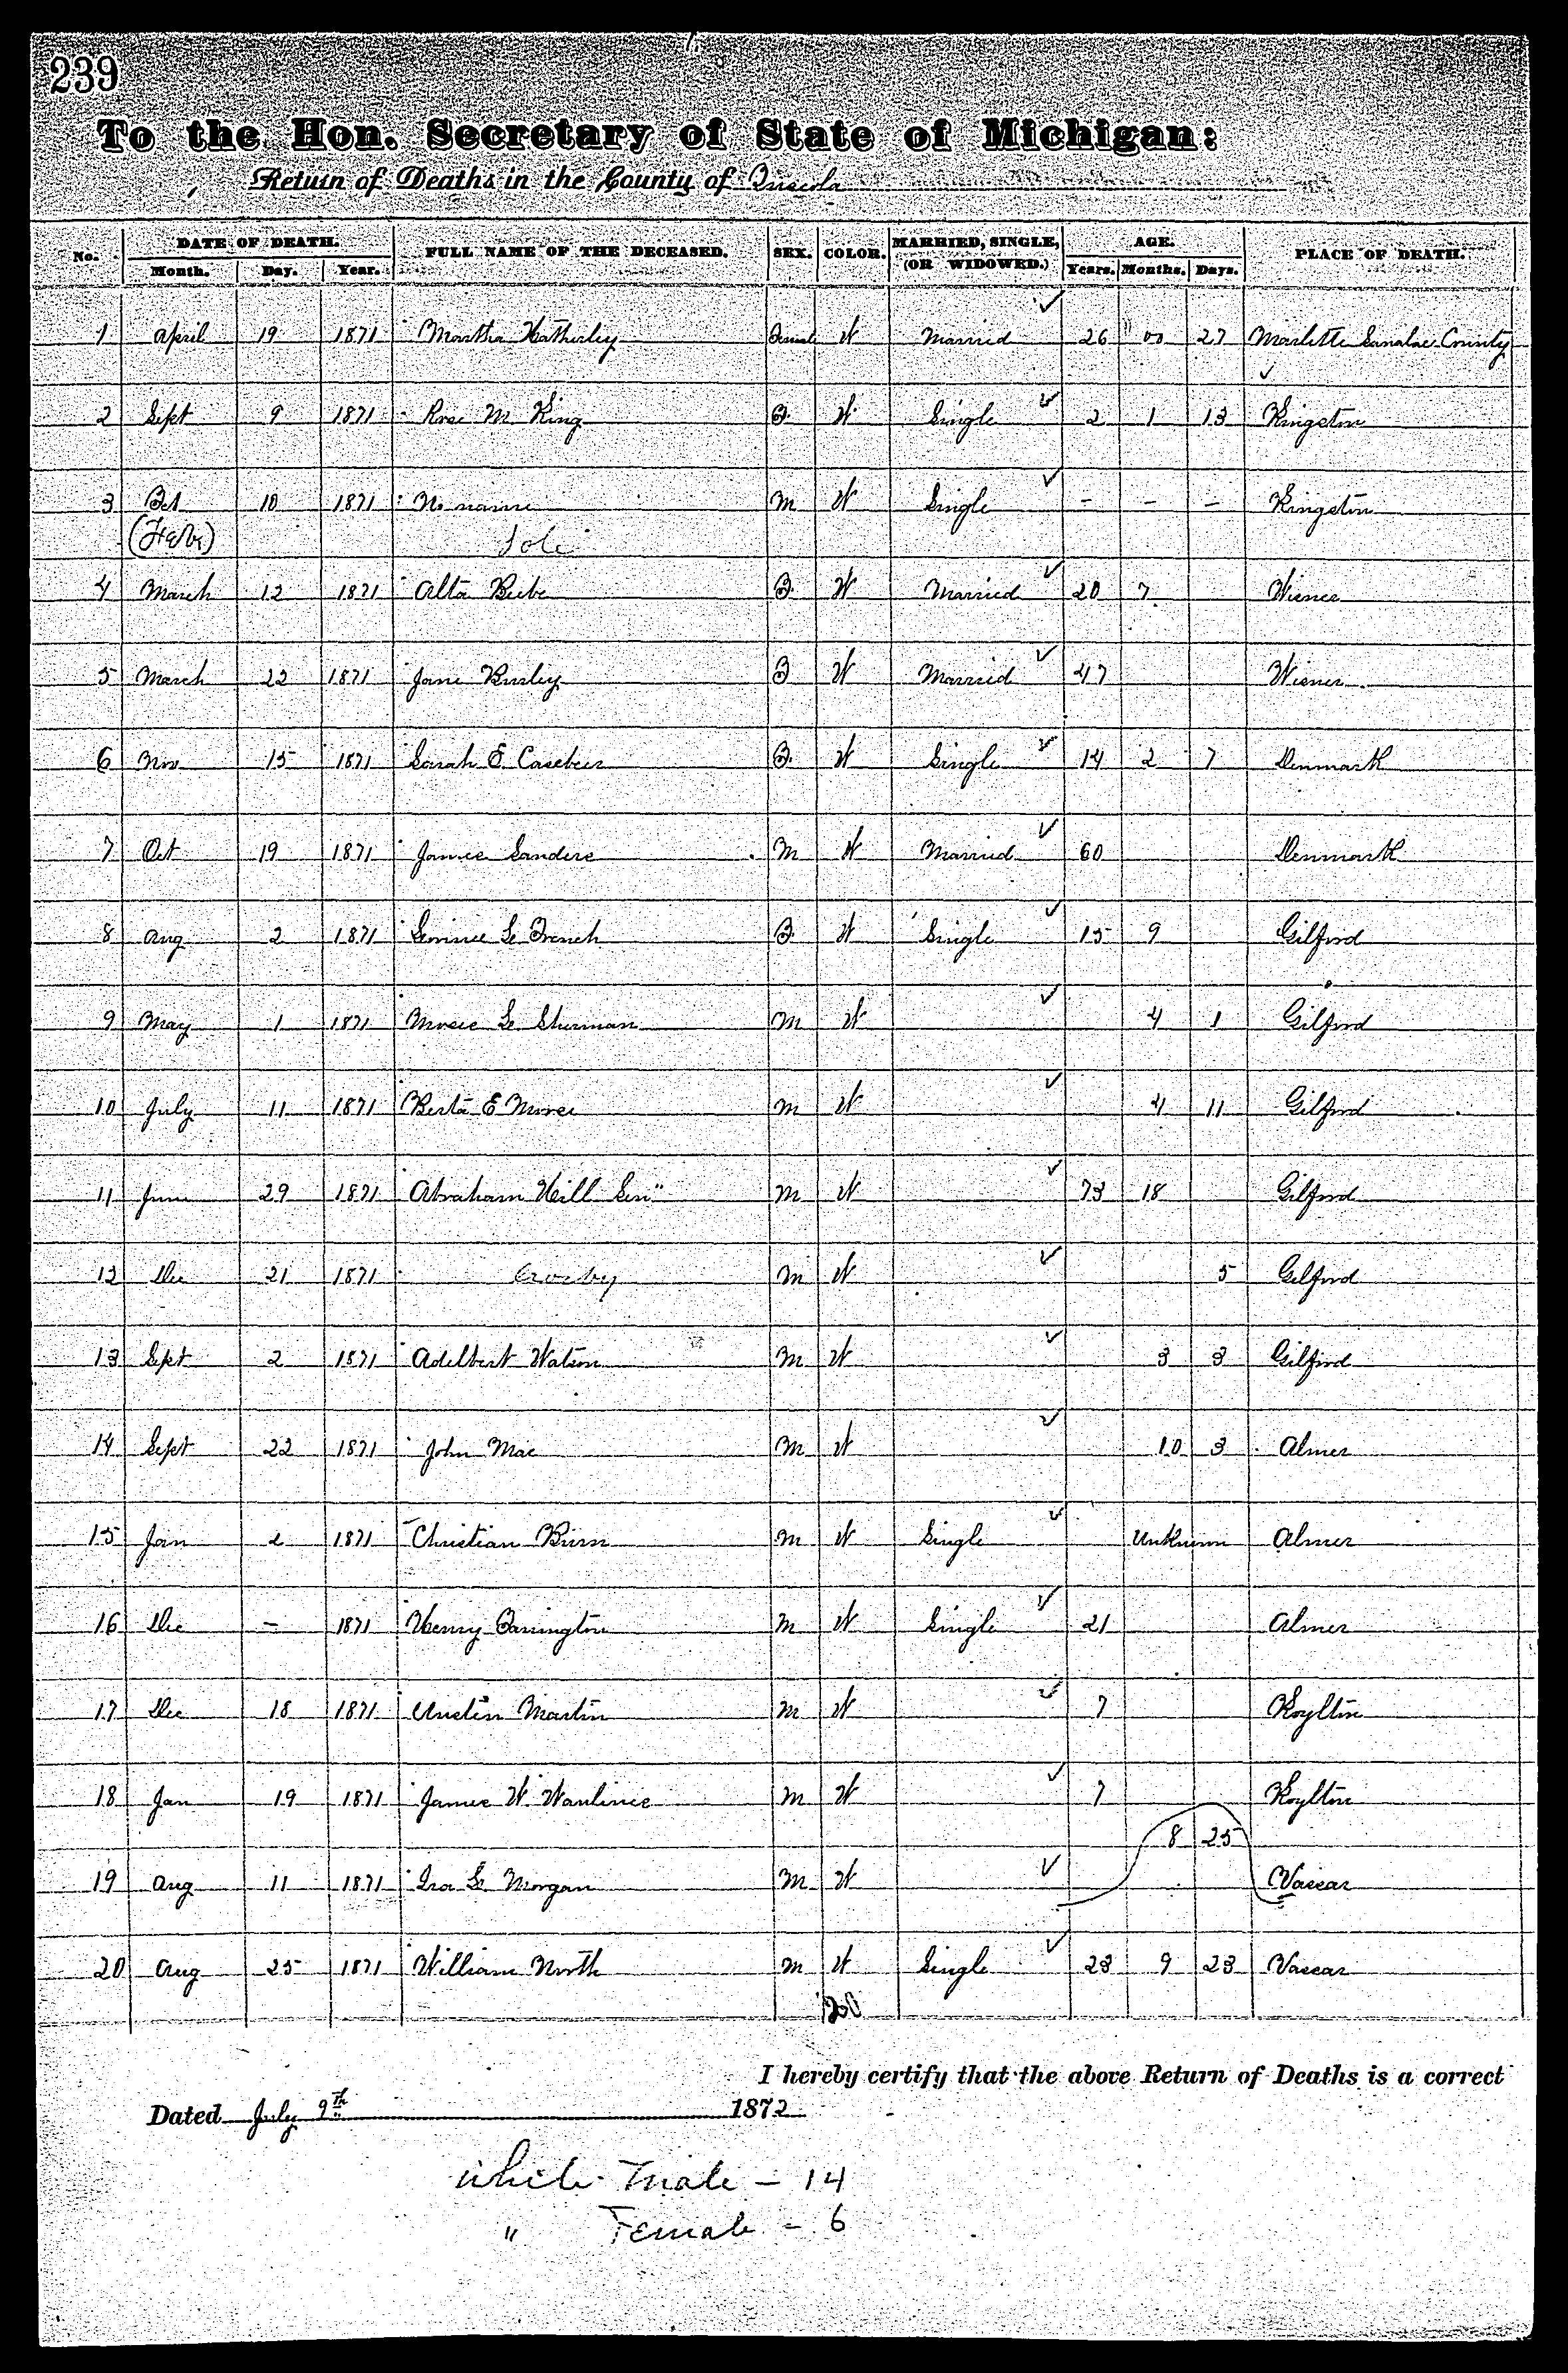 239
To the Hon. Secretary of State of Michigan:
Return of Deaths in the County of Tuscola
No. DATE OF DEATH. FULL NAME OF THE DECEASED. SEX. COLOR. MARRIED, SINGLE, (OR WIDOWED.) AGE. PLACE OF DEATH.
Month. Day. Year. Years. Months. Days.
1 April 19 1871 Martha Hatherley Female W Married 26 00 27 Marlette Sanalac County
2 Sept 9 1871 Rose M King F. W. Single 2 1 13 Kingston
3 Oct 10 1871 No name M W Single - - - Kingston
(Febr) Sole
4 March 12 1871 Alta Beebe F. W Married 20 7 Wisner
5 March 22 1871 Jane Bursley F W Married 47 Wisner
6 Nov 15 1871 Sarah E. Casebeer F. W Single 14 2 7 Denmark
7 Oct 19 1871 James Sanders M W Married 60 Denmark
8 Aug 2 1871 L. French F. W Single 15 9 Gilford
9 May 1 1871 Moses L. Sherman M W 4 1 Gilford
10 July 11 1871 Berta E Morse M W 4 11 Gilford
11 June 29 1871 Abraham Hill Sen" M W 73 18 Gilford
12 Dec 21 1871 Crosby M W 5 Gilford
13 Sept 2 1871 Adelbert Watson M W 3 3 Gilford
14 Sept 22 1871 John Mac M W 10 3 Almer
15 Jan 2 1871 Christian Burn M W Single Unknown Almer
16 Dec - 1871 Henry Farrington M W Single 21 Almer
17 Dec 18 1871 Austin Martin M W 7 Koylton
18 Jan 19 1871 James W. M W 7 Koylton
8 25
19 Aug 11 1871 Ira L. Morgan M W Vassar
20 Aug 25 1871 William North M W Single 23 9 23 Vassar
20
I hereby certify that the above Return of Deaths is a correct
Dated July 9th 1872
White Male - 14
" Female - 6